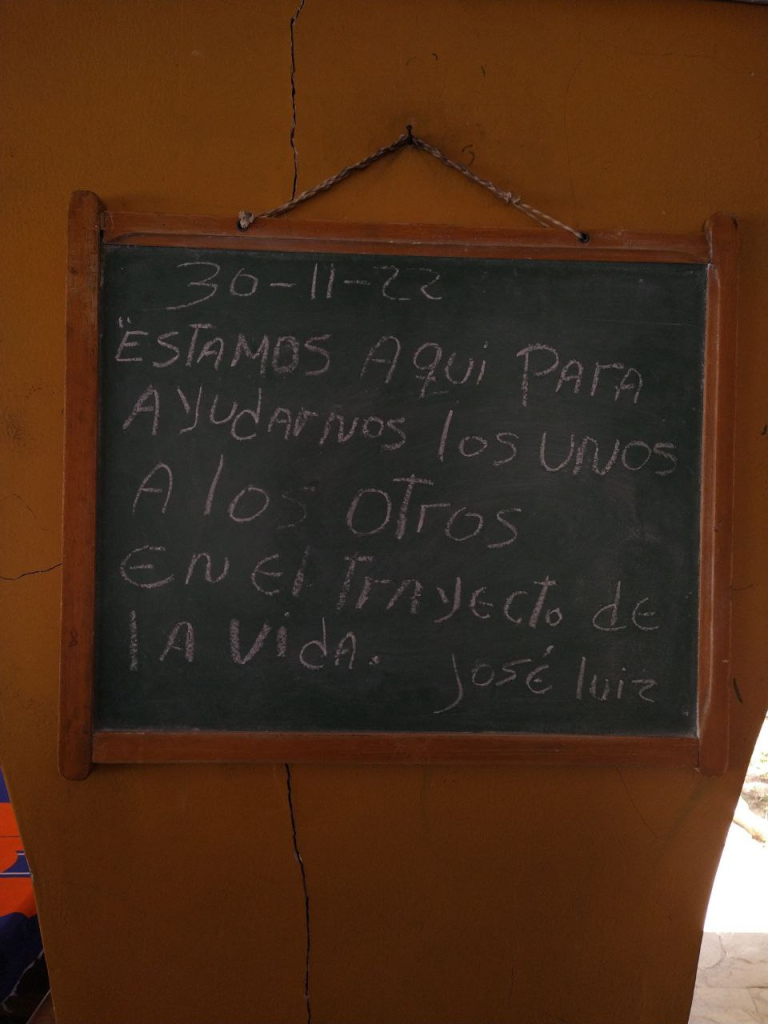 30-11-22
"ESTAMOS AQUI PARA
AYUDARNOS los UNOS
A los OTROS
EN El TRAYECTO de
lA VidA.
José luiz